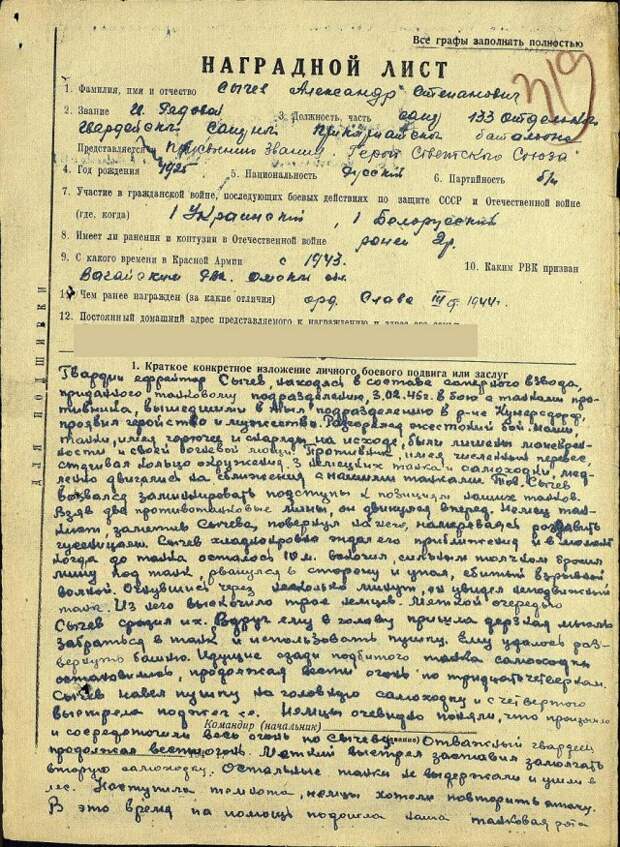 Все графы заполнять полностью
НАГРАДНОЙ ЛИСТ
1. Фамилия, имя и отчество Сычев Александр Степанович
2. Звание Гв. Рядовой 3. Должность, часть сапер 133 отдельн.
Гвардейский Сапурный батальона
Представляется к Присвоению звания „Герой Советского Союза"
4. Год рождения 1925 5. Национальность русский 6. Партийность б/п
7. Участие в гражданской войне, последующих боевых действиях по защите СССР и Отечественной войне
(где, когда) 1 Украинский, 1 Белорусский
8. Имеет ли ранения и контузии в Отечественной войне ранен
9. С какого времени в Красной Армии с 1943. 10. Каким РВК призван
Вагайским Омской обл.
11. Чем ранее награжден (за какие отличия) орд. Слава III ст. 1944г.
12. Постоянный домашний адрес представляемого к награждению и адрес его семьи
ДЛЯ ПОДШИВКИ
1. Краткое конкретное изложение личного боевого подвига или заслуг
Гвардии ефрейтор Сычев, находясь в составе саперного взвода,
приданного танковому подразделению, 3.02.45г. в бою с танками про-
тивника, вышедшими в тыл подразделению в р-не Кунерсдорф,
проявил геройство и мужество. Разгорелся жестокий бой. Наши
танки, имея горючее и снаряды на исходе, были лишены маневрен-
ности и своей огневой мощи. Противник, имея численный перевес,
стягивал кольцо окружения. 3 немецких танка и самоходки, мед-
ленно двигались на сближения с нашими танками. Тов. Сычев
вызвался заминировать подступы к позициям наших танков.
Взяв две противотанковые мины, он двинулся вперед. Немец тан-
кист, заметив Сычева, повернул на него, намереваясь раздавить
гусеницами. Сычев хладнокровно ждал его приближения и в момент
когда до танка осталось 10 м. вскочил, сильным толчком бросил
мину под танк, рванулся в сторону и упал, сбитый взрывной
волной. Очнувшись через несколько минут, он увидел неподвижный
танк. Из него выскочило трое немцев. Меткой очередью
Сычев сразил их. Вдруг ему в голову пришла дерзкая мысль
забраться в танк и использовать пушку. Ему удалось раз-
вернуть башню. Идущие сзади подбитого танка самоходки
остановились, продолжая вести огонь по тридцатьчетверкам.
Сычев навел пушку на головную самоходку и с четвертого
выстрела поджег ее. Немцы очевидно поняли, что произошло
Командир (начальник)
и сосредоточили весь огонь по Сычеву. Отважный гвардеец
продолжал вести огонь. Меткий выстрел заставил замолчать
вторую самоходку. Остальные танки не выдержали и ушли в
лес. Наступила темнота, немцы хотели повторить атаку.
В это время на помощь подошла наша танковая рота